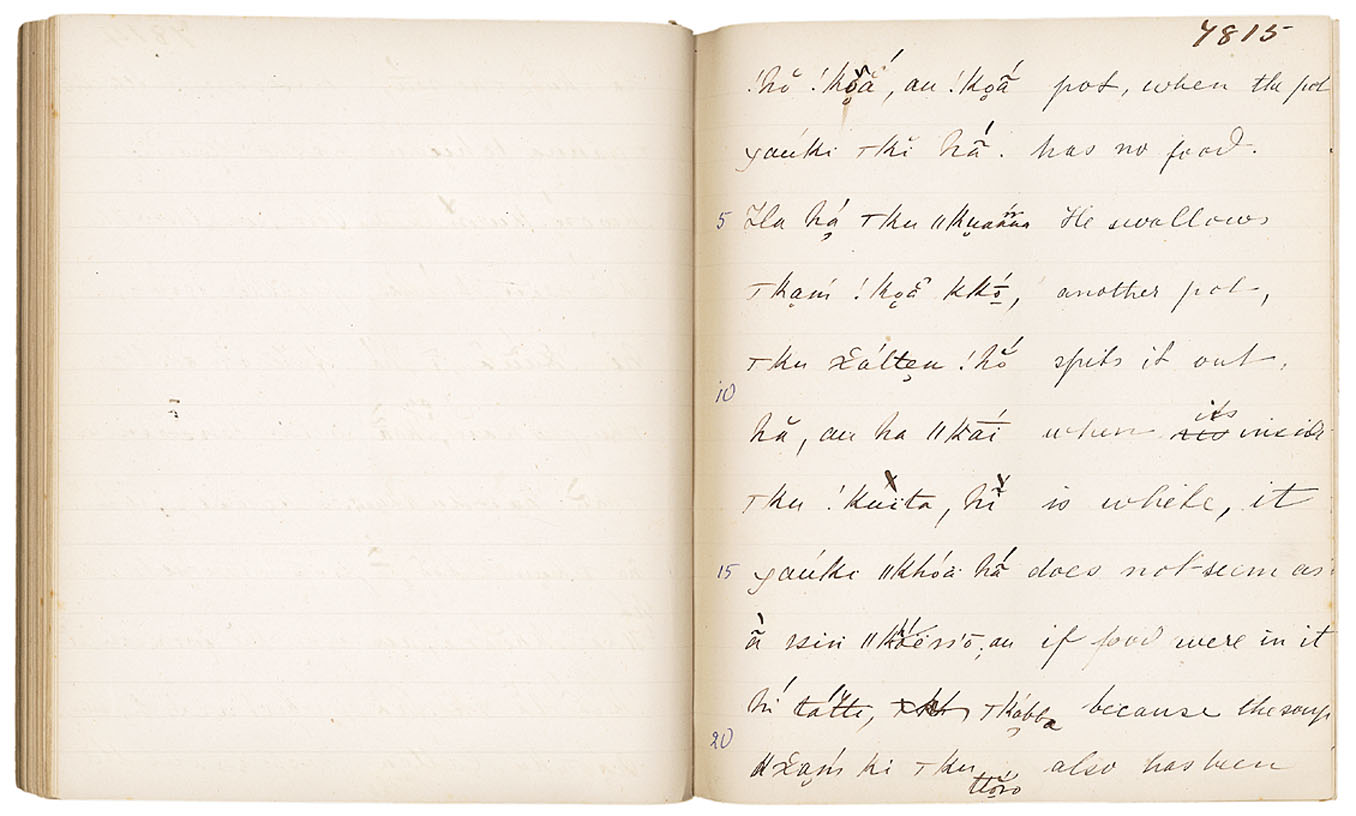 7815
!hŏ !kọ̆ä́, au !kọ̃ā́ pot, when the pot
χaúki ⊤kĭ hā̃́. has no food.
5 Ha hạ́ ⊤ku ǁkụạnna He swallows
⊤kạḿ !kọã kkọ́, another pot,
⊤ku χátten !hŏ́ spits it out,
10
hă, au ha ǁkāĭ́ when its inside
⊤ku !kuïta, hĭ̀ is white, it
15 χaúki ǁkhóä hā̃́ does not seem as
ā̀ ssin ǁ if food were in it
hĭ́ tátti, ⊤kạ́bba because the soup
20
ǁχạḿ ki ⊤ku ttọ́ro also has been